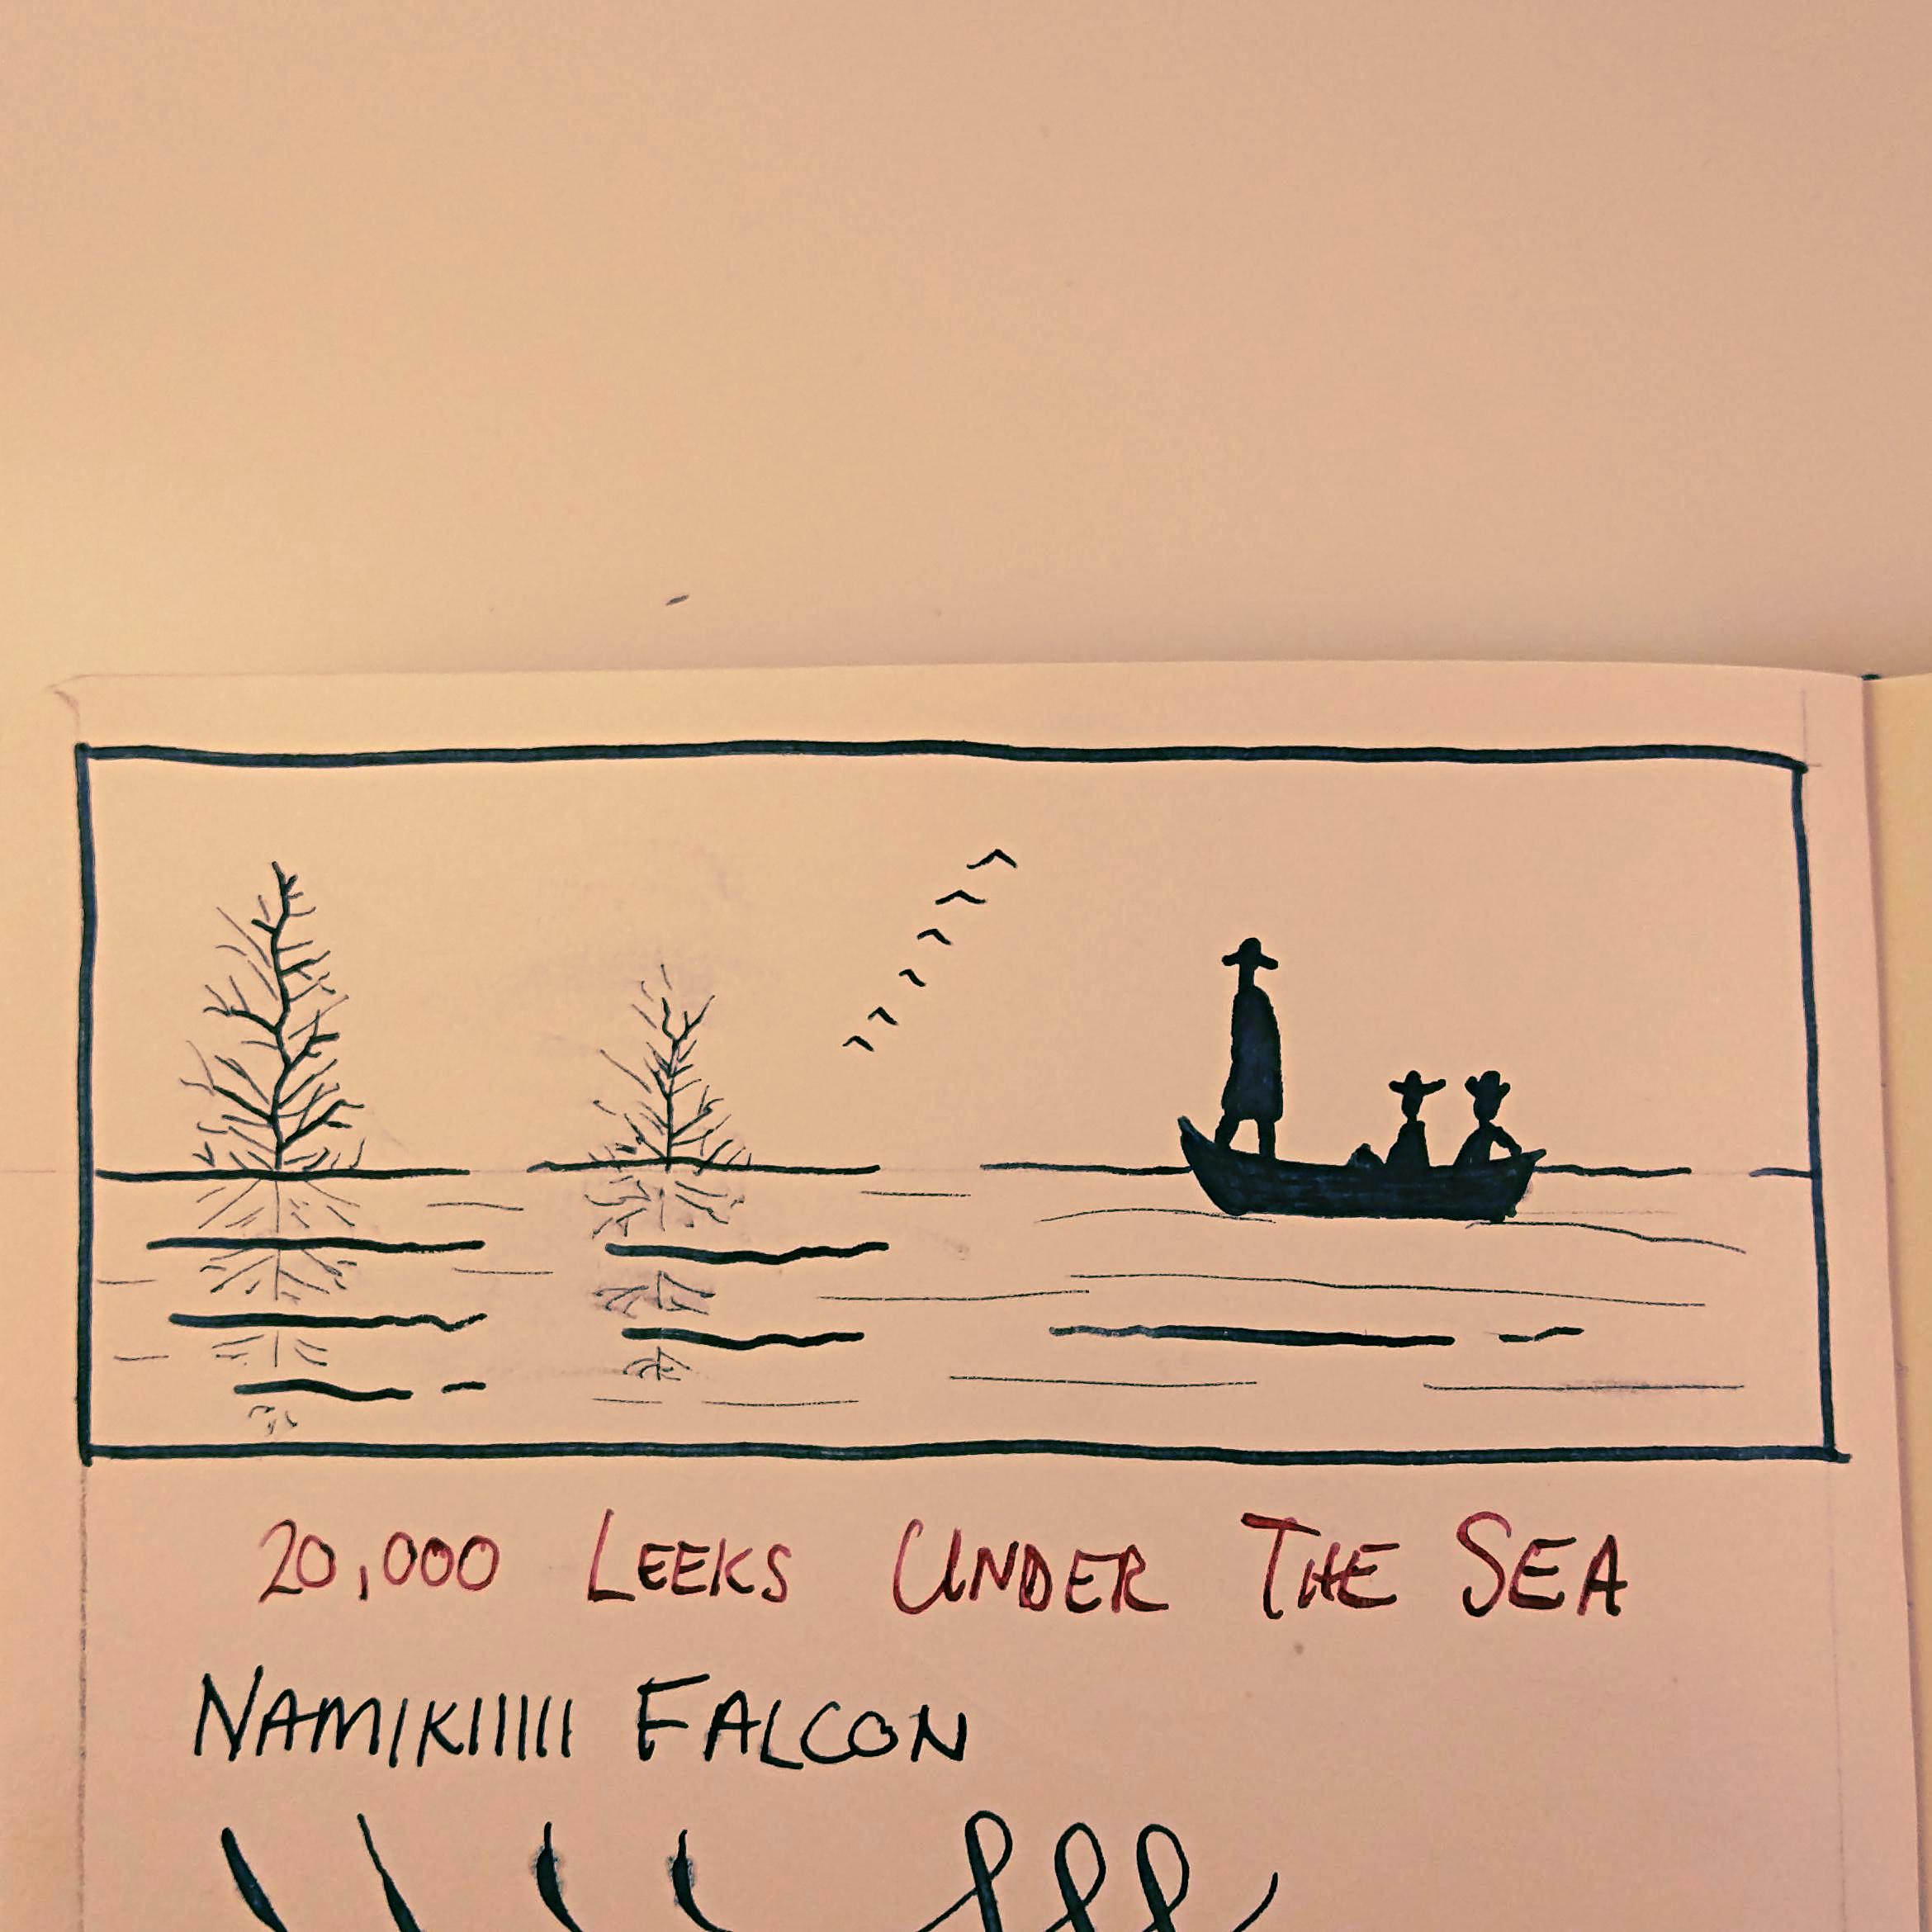 20,000 LEEKS UNDER THE SEA
NAMIKIIIIII FALCON